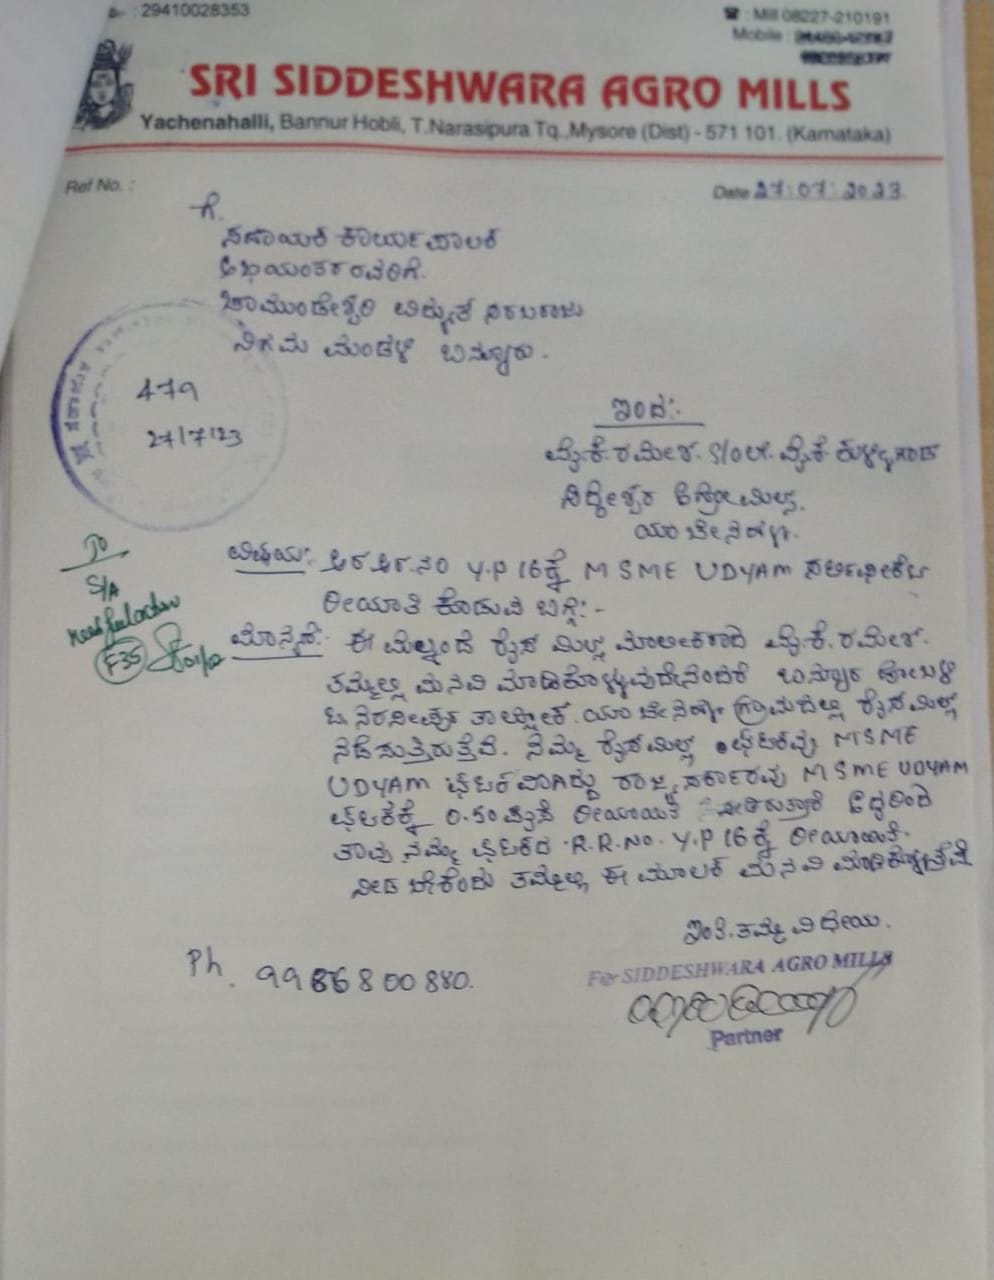 : 29410028353
☎ : Mill 08227-210191
Mobile :
SRI SIDDESHWARA AGRO MILLS
Yachenahalli, Bannur Hobli, T.Narasipura Tq.,Mysore (Dist) - 571 101. (Karnataka)
Ref No. :
Date 27:07:2023
ಗೆ.
ಸಹಾಯಕ ಕಾರ್ಯಪಾಲಕ
ಅಭಿಯಂತರರವರಿಗೆ.
ಚಾಮುಂಡೇಶ್ವರಿ ವಿದ್ಯುತ್ ಸರಬರಾಜು
ನಿಗಮ ಮಂಡಳಿ ಬನ್ನೂರು.
479
27/7/23
ಇಂದ:-
ವೈ.ಕೆ.ರಮೇಶ. S/o ಲೇ. ವೈ.ಕೆ
ಸಿದ್ಧೇಶ್ವರ ಆಗ್ರೋಮಿಲ್ಸ.
ಯಾಚೇನಹಳ್ಳಿ.
To
S/A
F35
ವಿಷಯ: ಆರ್.ಆರ್.ನಂ Y.P 16ಕ್ಕೆ MSME UDYAM
ರೀಯಾತಿ ಕೊಡುವ ಬಗ್ಗೆ:-
ಮಾನ್ಯರೆ: ಈ ಮೇಲ್ಕಂಡ ರೈಸ್ ಮಿಲ್ಲ್ ಮಾಲೀಕರಾದ ವೈ.ಕೆ.ರಮೇಶ್.
ತಮ್ಮಲ್ಲಿ ಮನವಿ ಮಾಡಿಕೊಳ್ಳುವುದೇನೆಂದರೆ ಬನ್ನೂರ ಹೋಬಳಿ
ಟಿ.ನರಸೀಪುರ ತಾಲ್ಲೋಕ್. ಯಾಚೇನಹಳ್ಳಿ ಗ್ರಾಮದಲ್ಲಿ ರೈಸ್ ಮಿಲ್ಲ್
ನೆಡೆಸುತ್ತಿರುತ್ತೇವೆ. ನಮ್ಮ ರೈಸ್ ಮಿಲ್ಲ್ ಘಟಕವು MSME
UDYAM ಘಟಕವಾಗಿದ್ದು ರಾಜ್ಯ ಸರ್ಕಾರವು MSME UDYAM
ಘಟಕಕ್ಕೆ 0.50 ಪೈಸೆ ರೀಯಾಯಿತಿ ನೀಡಿರುತ್ತಾರೆ ಆದ್ದರಿಂದ
ತಾವು ನಮ್ಮ ಘಟಕದ R.R.No. Y.P 16ಕ್ಕೆ ರೀಯಾಯಿತಿ.
ನೀಡಬೇಕೆಂದು ತಮ್ಮಲ್ಲಿ ಈ ಮೂಲಕ ಮನವಿ ಮಾಡಿಕೊಳ್ಳುತ್ತೇವೆ
ಇಂತಿ.ತಮ್ಮ ವಿಧೇಯ.
Ph. 9986800880.
For SIDDESHWARA AGRO MILLS
Partner